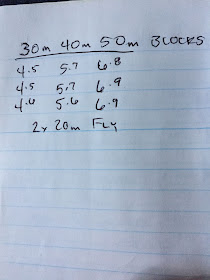 30m 40m 50m BLOCKS
4.5 5.7 6.8
4.5 5.7 6.9
4.6 5.6 6.9
2x 20m FLY